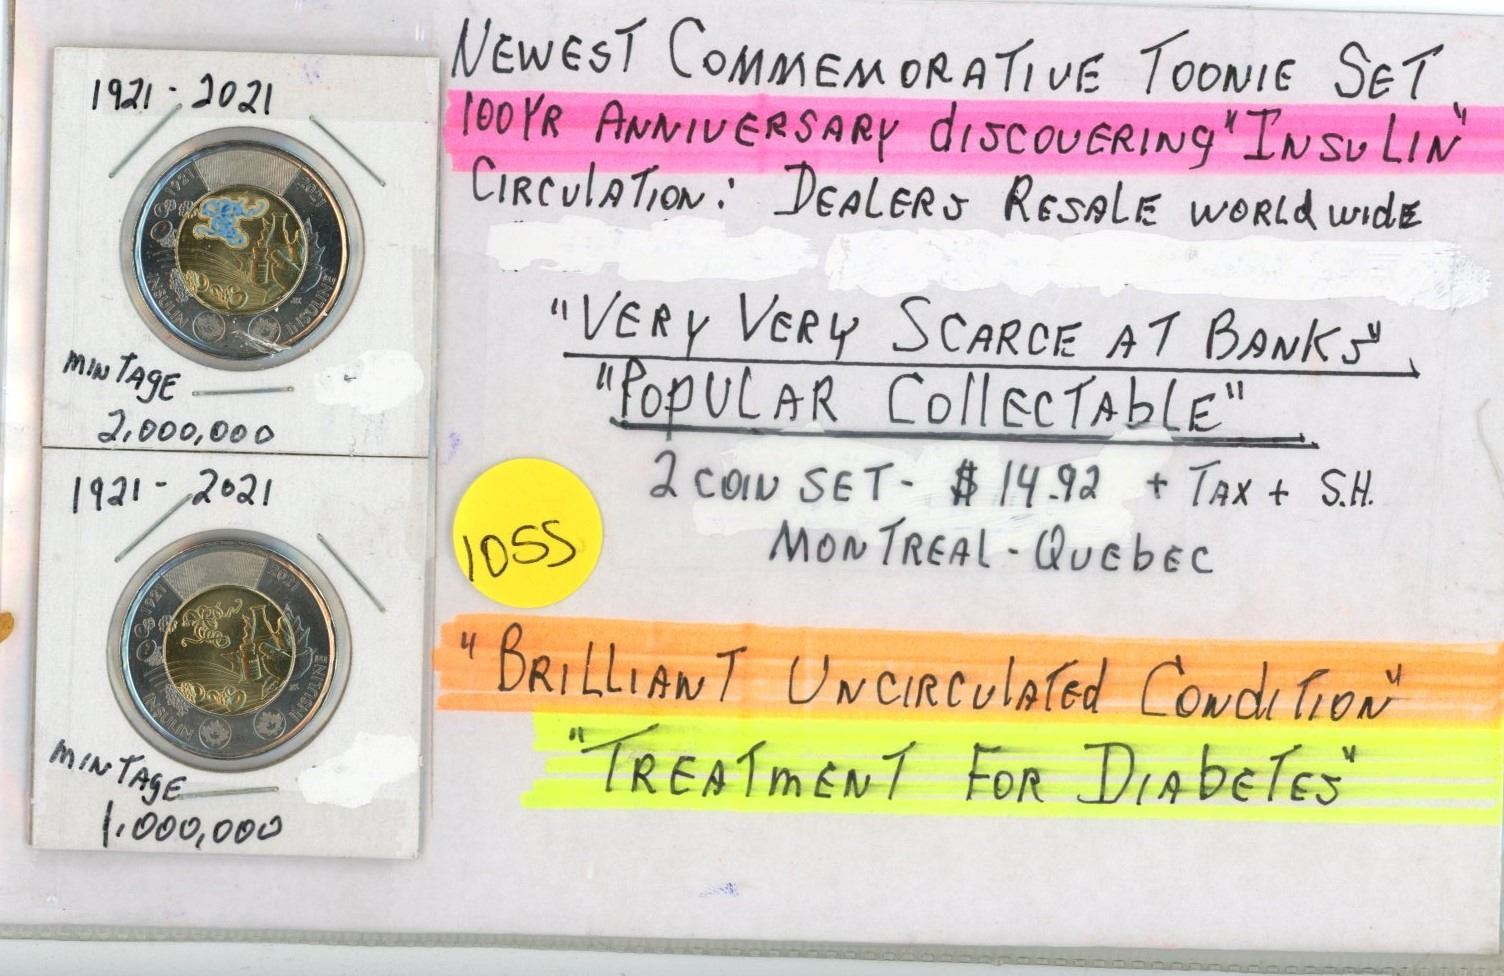 1921 - 2021
1921
2021
INSULIN
INSULINE
MINTAGE
2,000,000
1921 - 2021
1921
2021
INSULIN
INSULINE
MINTAGE
1,000,000
NEWEST COMMEMORATIVE TOONIE SET
100YR ANNIVERSARY discovering "INSULIN"
CIRCULATION: DEALERS RESALE WORLdwidE
"VERY VERY SCARCE AT BANKS"
"POPULAR COllECTAblE"
2 COIN SET - $14.92 + TAX + S.H.
MONTREAL - QUEbEC
1055
"BRILLIANT UNCIRCULATEd CONdITION"
"TREATMENT FOR DIAbETES"